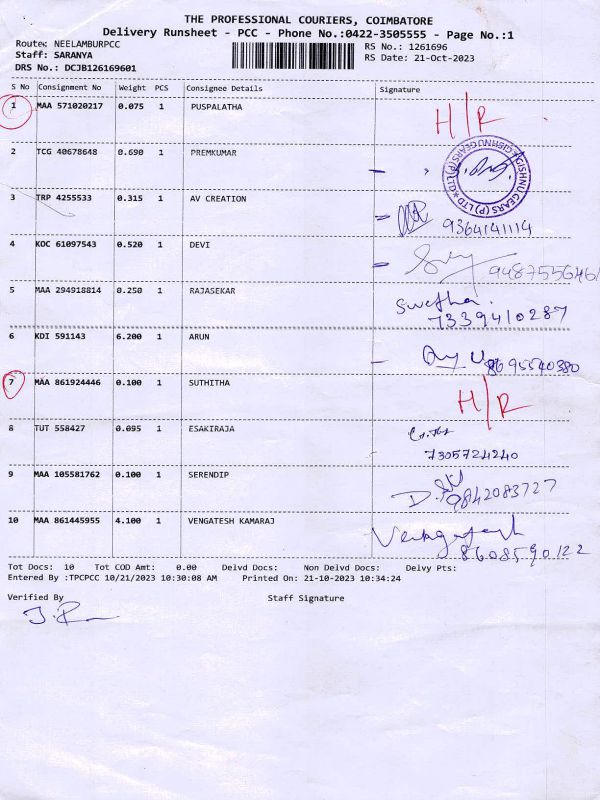 THE PROFESSIONAL COURIERS, COIMBATORE
Delivery Runsheet - PCC - Phone No.:0422-3505555 - Page No.:1
Route: NEELAMBURPCC
RS No.: 1261696
Staff: SARANYA
RS Date: 21-Oct-2023
DRS No.: DCJB126169601
S No Consignment No Weight PCS Consignee Details Signature
1 MAA 571020217 0.075 1 PUSPALATHA H/R
2 TCG 40678648 0.690 1 PREMKUMAR
GISHNU GEARS (P) LTD
3 TRP 4255533 0.315 1 AV CREATION 9364141114
4 KOC 61097543 0.520 1 DEVI 9487556461
5 MAA 294918814 0.250 1 RAJASEKAR Swetha.
7339410287
6 KDI 591143 6.200 1 ARUN 8695540380
7 MAA 861924446 0.100 1 SUTHITHA H/R
8 TUT 558427 0.095 1 ESAKIRAJA
7305724240
9 MAA 105581762 0.100 1 SERENDIP 9842083727
10 MAA 861445955 4.100 1 VENGATESH KAMARAJ
8608590122
Tot Docs: 10 Tot COD Amt: 0.00 Delvd Docs: Non Delvd Docs: Delvy Pts:
Entered By :TPCPCC 10/21/2023 10:30:08 AM Printed On: 21-10-2023 10:34:24
Verified By Staff Signature